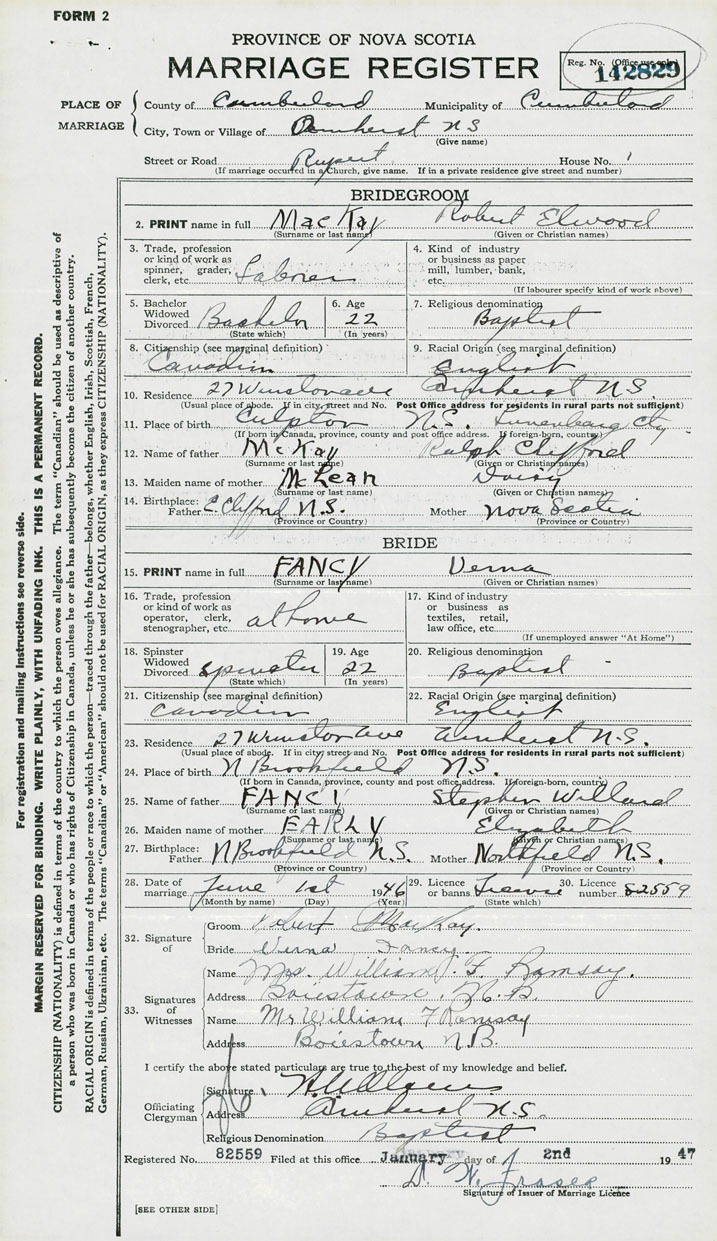 FORM 2
PROVINCE OF NOVA SCOTIA
MARRIAGE REGISTER
Reg. No. (Office use only)
142829
PLACE OF MARRIAGE
County of Cumberland Municipality of Cumberland
City, Town or Village of Amherst N S
(Give name)
Street or Road Rupert House No.
(If marriage occurred in a Church, give name. If in a private residence give street and number)
BRIDEGROOM
2. PRINT name in full MacKay Robert Elwood
(Surname or last name) (Given or Christian names)
3. Trade, profession or kind of work as spinner, grader, clerk, etc. Laborer
4. Kind of industry or business as paper mill, lumber, bank, etc.
(If labourer specify kind of work above)
5. Bachelor Widowed Divorced Bachelor
(State which)
6. Age 22
(In years)
7. Religious denomination Baptist
8. Citizenship (see marginal definition) Canadian
9. Racial Origin (see marginal definition) English
10. Residence 27 Winston ave Amherst N.S.
(Usual place of abode. If in city, street and No. Post Office address for residents in rural parts not sufficient)
11. Place of birth N.S. Lunenburg Cty
(If born in Canada, province, county and post office address. If foreign-born, country)
12. Name of father McKay Ralph Clifford
(Surname or last name) (Given or Christian names)
13. Maiden name of mother McLean Daisy
(Surname or last name) (Given or Christian names)
14. Birthplace: Father N.S. Mother Nova Scotia
(Province or Country) (Province or Country)
BRIDE
15. PRINT name in full FANCY Verna
(Surname or last name) (Given or Christian names)
16. Trade, profession or kind of work as operator, clerk, stenographer, etc. at home
17. Kind of industry or business as textiles, retail, law office, etc.
(If unemployed answer "At Home")
18. Spinster Widowed Divorced Spinster
(State which)
19. Age 22
(In years)
20. Religious denomination Baptist
21. Citizenship (see marginal definition) Canadian
22. Racial Origin (see marginal definition) English
23. Residence 27 Winston Ave Amherst N.S.
(Usual place of abode. If in city, street and No. Post Office address for residents in rural parts not sufficient)
24. Place of birth N Brookfield N.S.
(If born in Canada, province, county and post office address. If foreign-born, country)
25. Name of father FANCY Stephen Willard
(Surname or last name) (Given or Christian names)
26. Maiden name of mother EARLY Elizabeth
(Surname or last name) (Given or Christian names)
27. Birthplace: Father N Brookfield N.S. Mother Northfield N.S.
(Province or Country) (Province or Country)
28. Date of marriage June 1st 1946
(Month by name) (Day) (Year)
29. Licence or banns License
(State which)
30. Licence number 82559
32. Signature of
Groom Robert MacKay.
Bride Verna Fancy
33. Signatures of Witnesses
Name Mrs. William F. Ramsay.
Address Boiestown, N.B.
Name Mr William F Ramsay
Address Boiestown N.B.
I certify the above stated particulars are true to the best of my knowledge and belief.
Officiating Clergyman
Signature
Address Amherst N.S.
Religious Denomination Baptist
Registered No. 82559 Filed at this office January day of 2nd 1947
D. W. Fraser
Signature of Issuer of Marriage Licence
[SEE OTHER SIDE]
For registration and mailing instructions see reverse side.
MARGIN RESERVED FOR BINDING. WRITE PLAINLY, WITH UNFADING INK. THIS IS A PERMANENT RECORD.
CITIZENSHIP (NATIONALITY) is defined in terms of the country to which the person owes allegiance. The term "Canadian" should be used as descriptive of
a person who was born in Canada or who has rights of Citizenship in Canada, unless he or she has subsequently become the citizen of another country.
RACIAL ORIGIN is defined in terms of the people or race to which the person—traced through the father—belongs, whether English, Irish, Scottish, French,
German, Russian, Ukrainian, etc. The terms "Canadian" or "American" should not be used for RACIAL ORIGIN, as they express CITIZENSHIP (NATIONALITY).